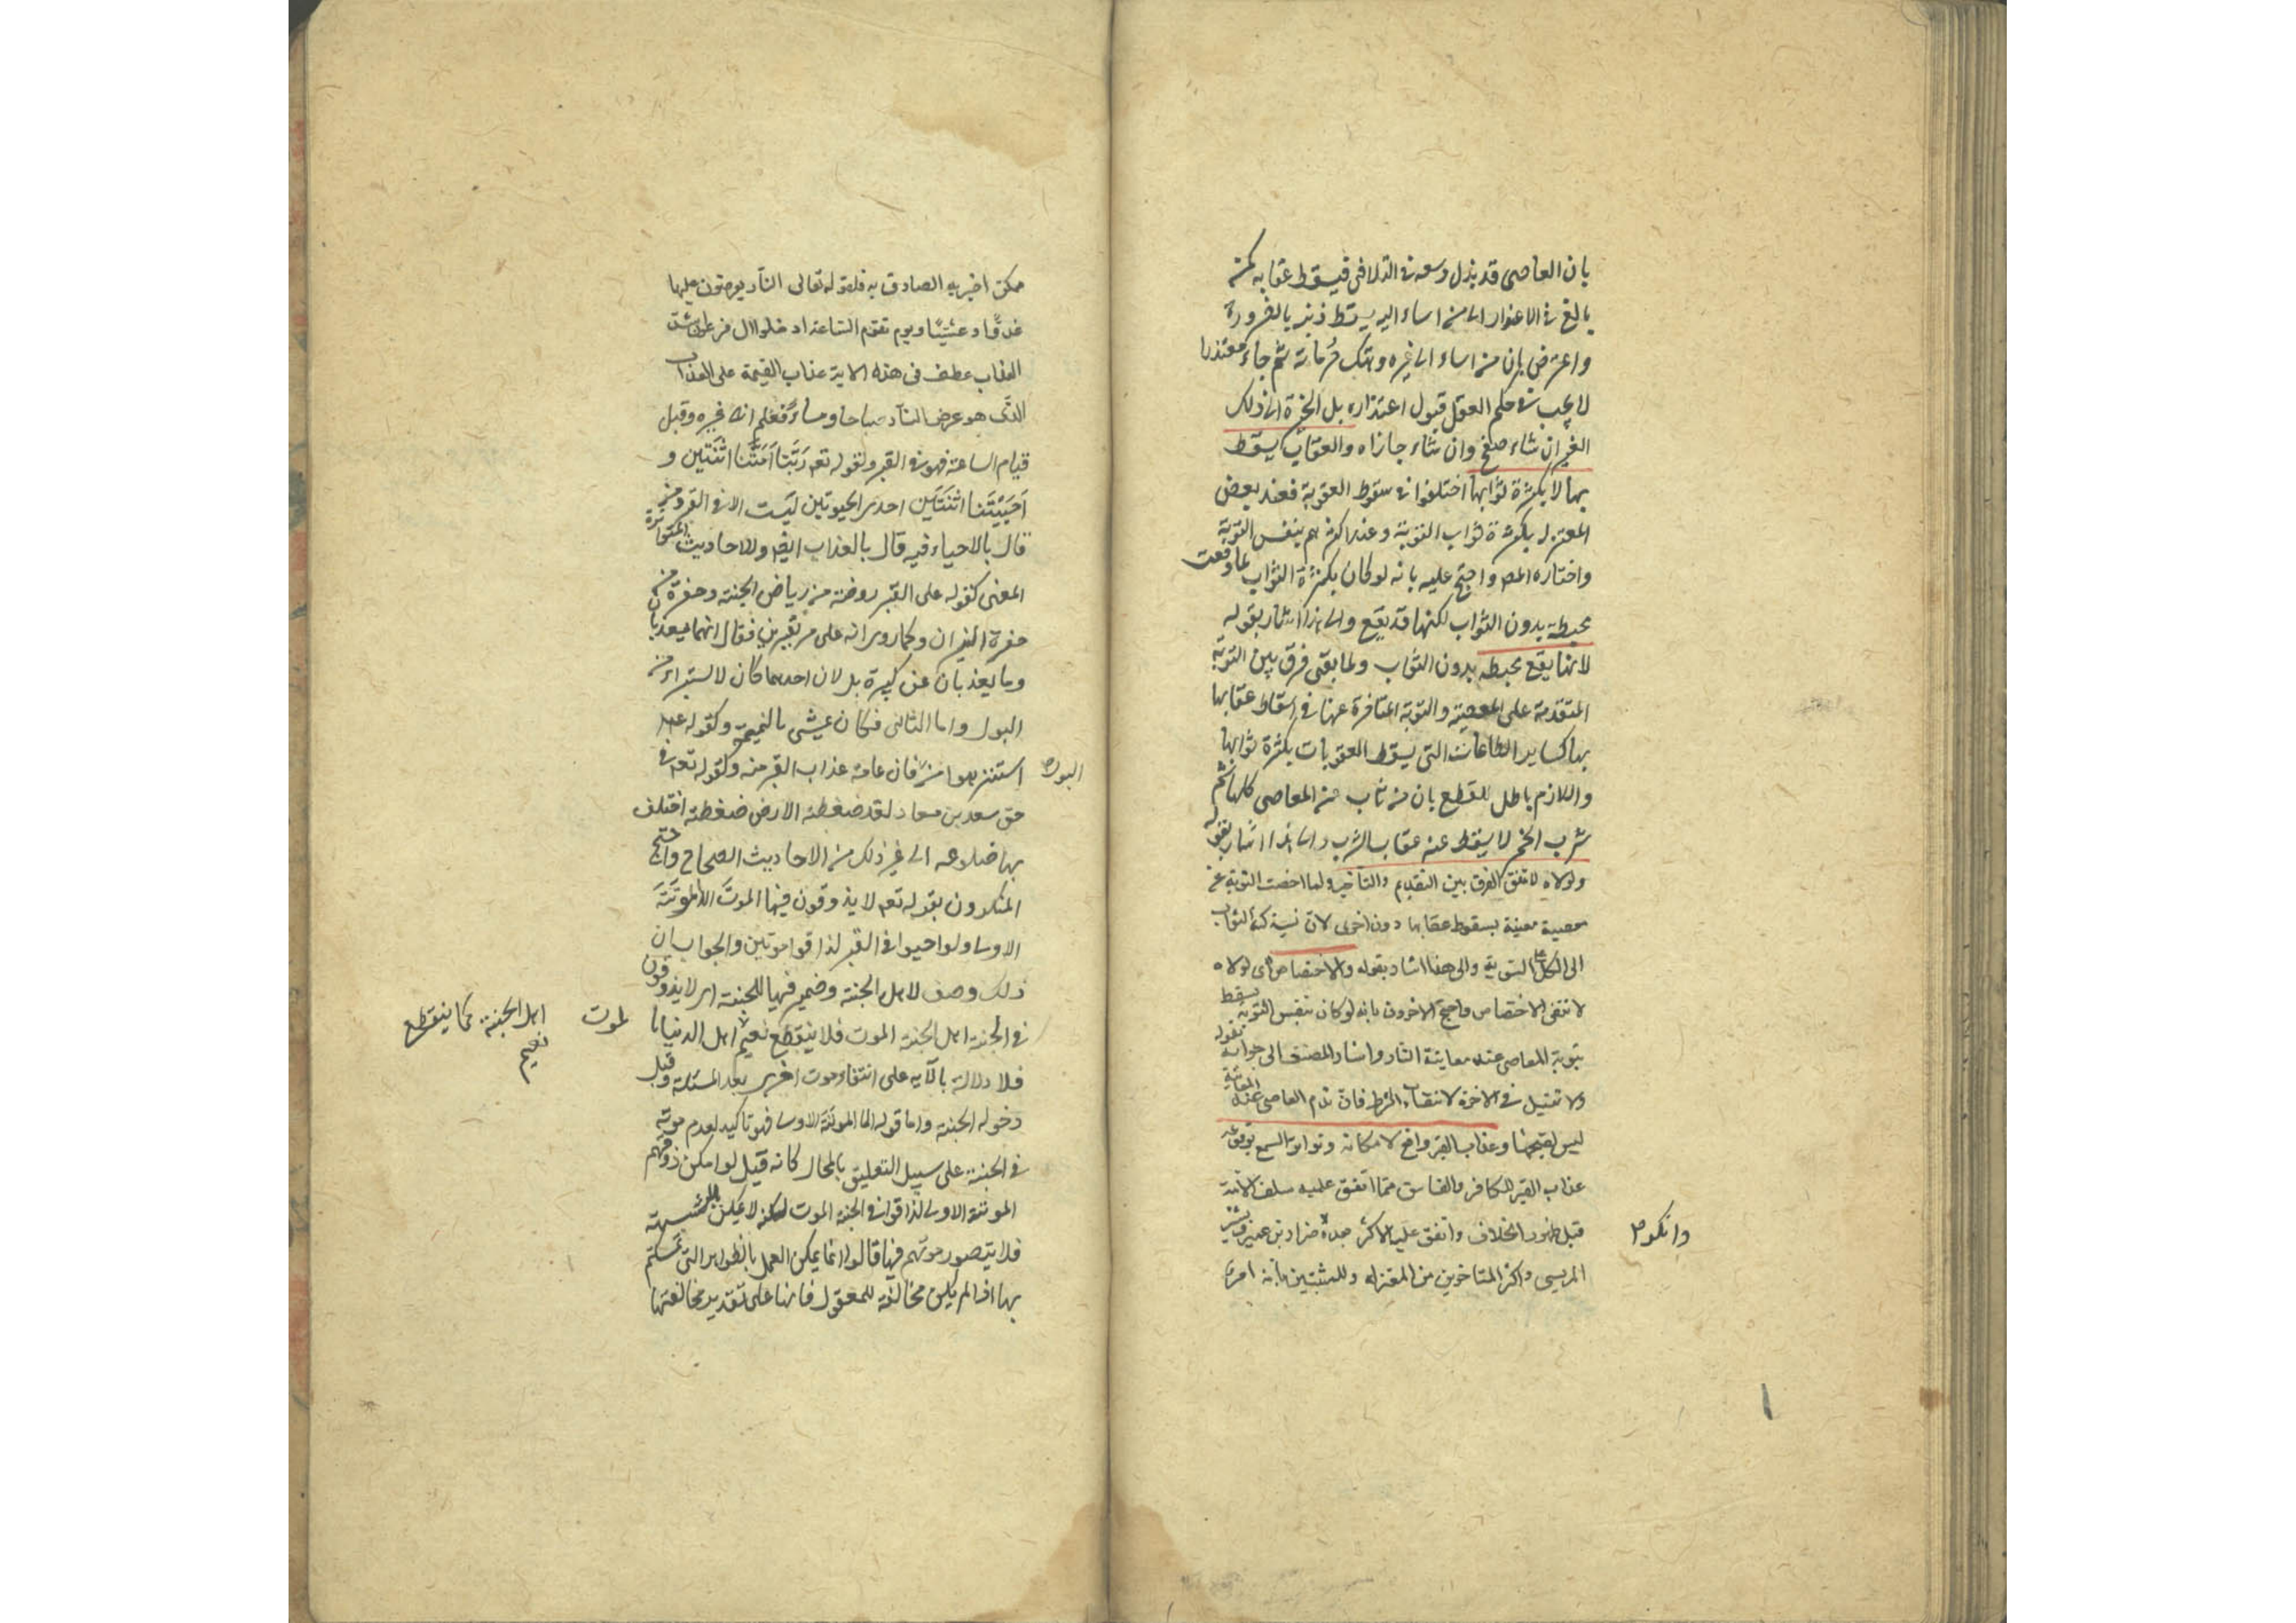 بان العاصى قد بذل وسعه فى التلافى فيسقط عقابه كمن
بالغ فى الاعتذار الى من اساء اليه يسقط ذنبه بالضرورة
واعترض بان من اساء الى غيره وهتك حرماته ثم جاء معتذرا
لا يجب فى حكم العقل قبول اعتذاره بل الخيرة الى ذلك
الغير ان شاء صفح وان شاء جازاه والعقاب يسقط
بها لا بكثرة ثوابها اختلفوا فى سقوط العقوبة فعند بعض
المعتزله بكثرة ثواب التوبة وعند اكثرهم بنفس التوبة
واختاره المص واحتج عليه بانه لو كان بكثرة الثواب لما وقعت
محبطة بدون الثواب لكنها قد يقع والى هذا اشار بقوله
لانها يقع محبطه بدون الثواب ولما بقى فرق بين التوبة
المتقدمة على المعصية والتوبة المتاخرة عنها فى اسقاط عقابها
بها كساير الطاعات التى يسقط العقوبات بكثرة ثوابها
واللازم باطل للقطع بان من تاب عن المعاصى كلها ثم
شرب الخمر لا يسقط عنه عقاب الشرب والى هذا اشار بقوله
ولولاه لانتفى الفرق بين التقديم والتأخير ولما اختصت التوبة عن
معصية معينة بسقوط عقابها دون اخرى لان نسبة كثرة الثواب
الى الكل على السوية والى هذا اشار بقوله والاختصاص اى لولاه
لانتفى الاختصاص واحتج الاخرون بانه لو كان بنفس التوبة يسقط
بتوبة العاصى عند معاينة النار واشار المصنف الى جوابه بقوله
ولا تقبل فى الاخرة لانتفاء الشرط فان ندم العاصى عند المعاينة
ليس لقبحها وعذاب القبر واقع لامكانه وتواتر السمع بوقوعه
عذاب القبر للكافر والفاسق مما اتفق عليه سلف الامة
قبل ظهور الخلاف واتفق عليه الاكثر بعده ضرار بن عمرو وبشر
وانكره
المريسى واكثر المتاخرين من المعتزله وللمثبتين بانه امر
ممكن اخبر به الصادق به فلقوله تعالى النار يعرضون عليها
غدوًّا وعشيًّا ويوم تقوم الساعة ادخلوا ال فرعون اشد
العذاب عطف فى هذه الاية عذاب القيمة على العذاب
الذى هو عرض النار صباحا ومساءً فعلم انه غيره وقبل
قيام الساعة فهو فى القبر ولقوله تعه رَبَّنا اَمَتَّنا اثْنَتين و
اَحْيَيْتَنا اثنَتَين احدى الحيوتين ليست الا فى القبر ومن
قال بالاحياء فيه قال بالعذاب ايضه وللاحاديث المتواترة
المعنى كقوله على القبر روضة من رياض الجنة وحفرة من
حفرة النيران وكما روى انه على مر بقبرين فقال انهما يعذبان
وما يعذبان عن كبيرة بل لان احدهما كان لا يستبراء من
البول واما الثانى فكان يمشى بالنميمة وكقوله عم
استنزهوا من فان عامة عذاب القبر منه وكقوله تعه فى
البول
حق سعد بن معاد لقد ضغطته الارض ضغطة اختلف
بها ضلاعه الى غير ذلك من الاحاديث الصحاح واحتج
المنكرون بقوله تعه لا يذوقون فيها الموتَ الا الموتَةَ
الاولى ولو احيوا فى القبر لذاقوا موتين والجواب ان
ذلك وصف لاهل الجنة وضمير فيها للجنة اى لا يذوقون
فى الجنة اهل الجنة الموت فلا ينقطع نعيم اهل الدنيا با
لموت
اهل الجنة كما ينقطع
نعيم
فلا دلالة بالآيه على انتفاء موت اخرى بعد المسئلة وقبل
دخوله الجنة واما قوله الا الموتة الاولى فهو تاكيد لعدم موته
فى الجنة على سبيل التعليق بالمحال كانه قيل لو امكن ذوقهم
الموتة الاولى لذاقوا فى الجنة الموت لكنه لا يمكن بلا شبهة
فلا يتصور موتهم فيها قالوا انما يمكن العمل بالظواهر التى تمسكتم
بها اذا لم يكن مخالفة للمعقول فانها على تقدير مخالفتها